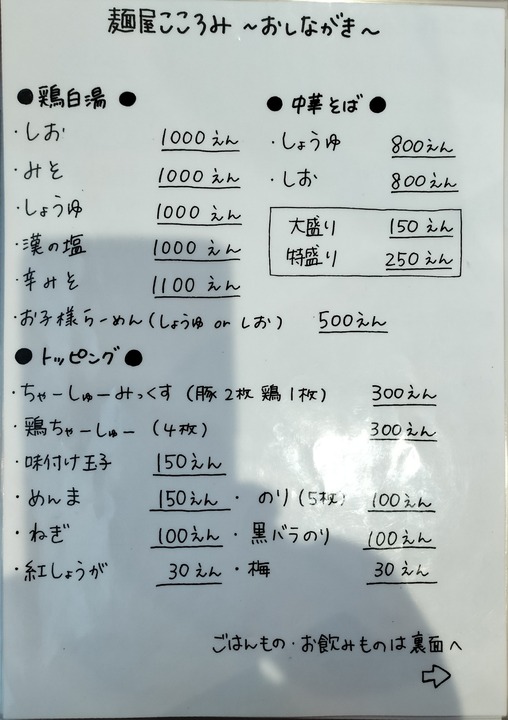 麺屋こころみ ~おしながき~
●鶏白湯●
・しお 1000えん
・みそ 1000えん
・しょうゆ 1000えん
・漢の塩 1000えん
・辛みそ 1100えん
●中華そば●
・しょうゆ 800えん
・しお 800えん
大盛り 150えん
特盛り 250えん
・お子様らーめん(しょうゆ or しお) 500えん
●トッピング●
・ちゃーしゅーみっくす (豚2枚 鶏1枚) 300えん
・鶏ちゃーしゅー (4枚) 300えん
・味付け玉子 150えん
・めんま 150えん ・のり(5枚) 100えん
・ねぎ 100えん ・黒バラのり 100えん
・紅しょうが 30えん ・梅 30えん
ごはんもの・お飲みものは裏面へ
⇨